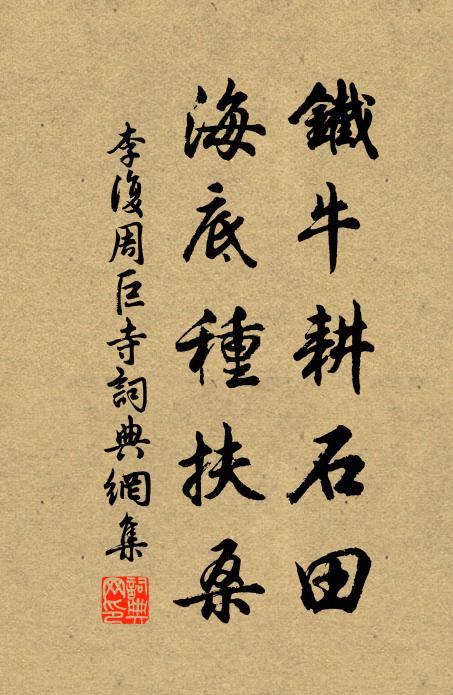 鐵牛耕石田
海底種扶桑
李復周巨寺詞典網集
詞典网印